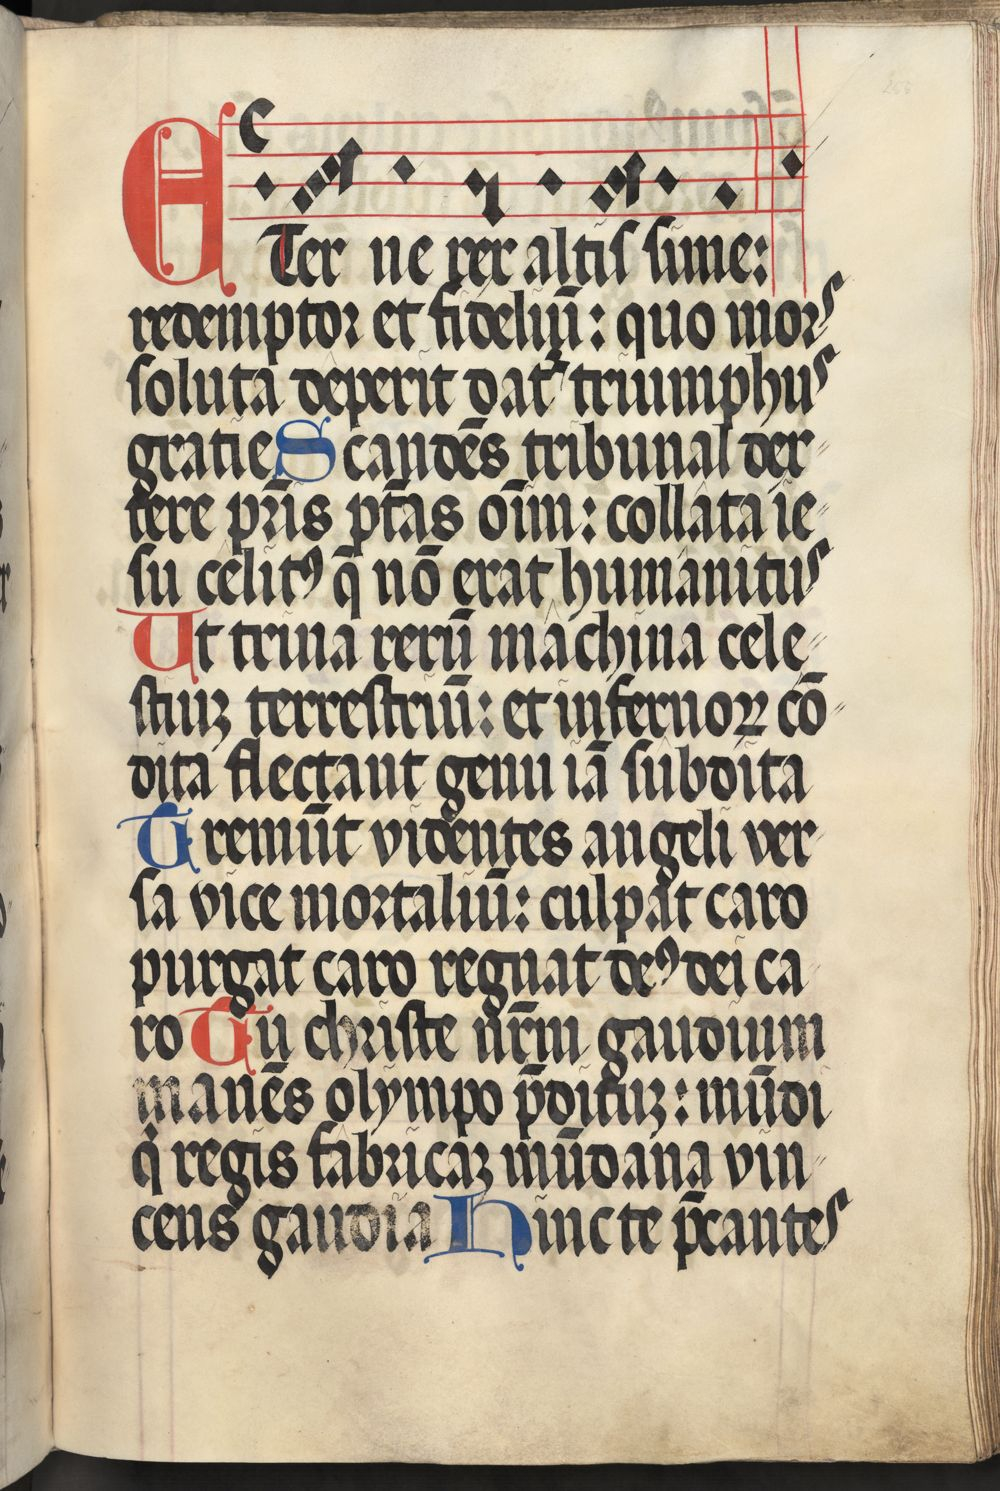 ETer ne rex altis sime:
redemptor et fideliū: quo mors
soluta deperit dat᷑ triumphus
gratie Scandēs tribunal dex
tere pr̄is pt̄as oīm: collata ie
su celitꝯ q̄ nō erat humanitus
Ut trina rerū machina cele
stiuꝫ terrestriū: et infernoꝝ cō
dita flectant genu iā subdita
Tremūt videntes angeli ver
sa vice mortaliū: culpat caro
purgat caro regnat deꝯ dei ca
ro Tu christe nr̄m gaudium
manēs olympo p̄dituꝫ: mūdi
q̇ regis fabricaꝫ mūdana vin
cens gaudia Hinc te p̄cantes